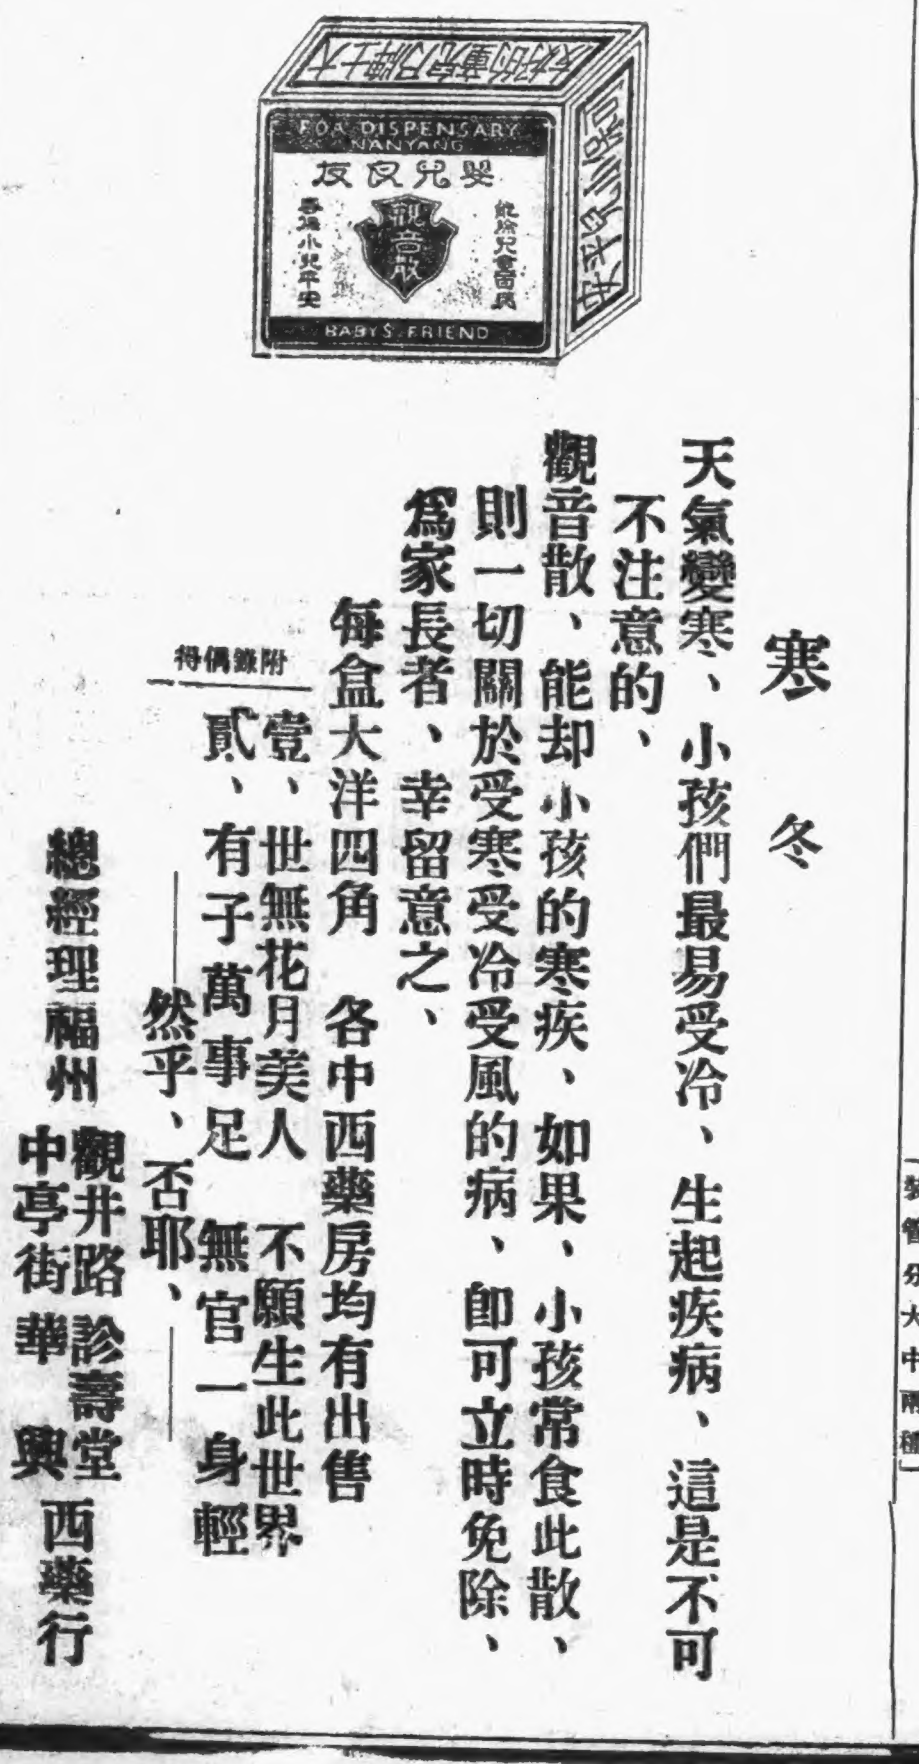 FOA DISPENSARY
NANYANG
嬰兒良友
觀音散
小兒平安
BABY'S FRIEND
寒冬
天氣變寒、小孩們最易受冷、生起疾病、這是不可
不注意的、
觀音散、能却小孩的寒疾、如果、小孩常食此散、
則一切關於受寒受冷受風的病、卽可立時免除、
爲家長者、幸留意之、
每盒大洋四角 各中西藥房均有出售
附錄偶得
壹、世無花月美人 不願生此世界
貳、有子萬事足 無官一身輕
——然乎、否耶、——
總經理福州
觀井路 診壽堂
中亭街 華興
西藥行
管分大中兩種